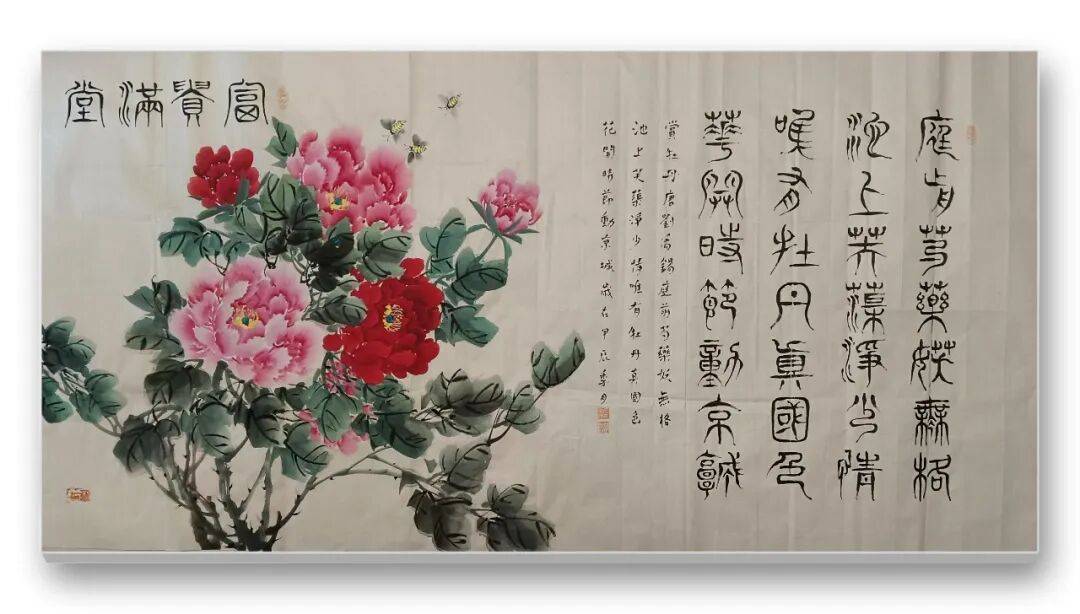 庭前芍藥妖無格
池上芙蕖淨少情
唯有牡丹真國色
華開時節動京城
賞牡丹唐劉禹錫庭前芍藥妖無格
池上芙蕖淨少情唯有牡丹真國色
花開時節動京城歲在甲辰
富貴滿堂